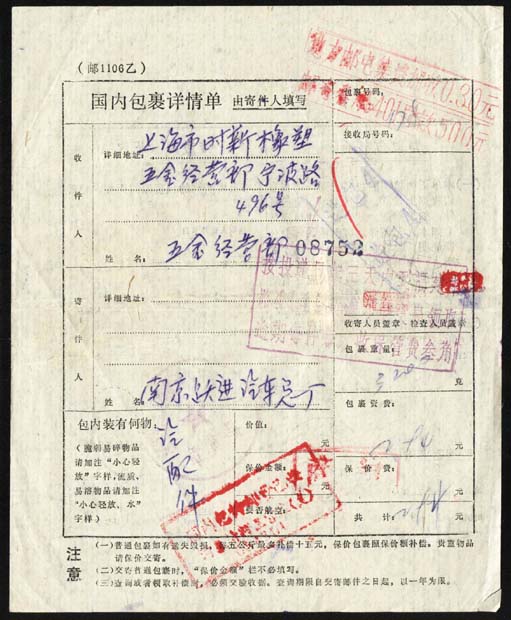 （邮1106乙）
国内包裹详情单 由寄件人填写
包裹号码：
接收局号码：
收件人
详细地址：上海市时新橡塑
五金经营部宁波路
496号
姓名：五金经营部
08752
寄件人
详细地址：
姓名：南京跃进汽车总厂
收寄人员盖章
检查人员盖章
包裹重量：
克
包裹资费：
元
包内装有何物：
汽配件
（脆弱易碎物品
请加注“小心轻
放”字样，流质、
易溶物品请加注
“小心轻放、水”
字样）
价值：
元
保价金额：
元
要否航空：
保价费：
元
共计：
元
注意
（一）普通包裹如有遗失毁损，每五公斤最多补偿十五元，保价包裹照保价额补偿。贵重物品
请保价交寄。
（二）交寄普通包裹时，“保价金额”栏不必填写。
（三）查询或者领取补偿时，必须交验收据。查询期限自交寄邮件之日起，以一年为限。